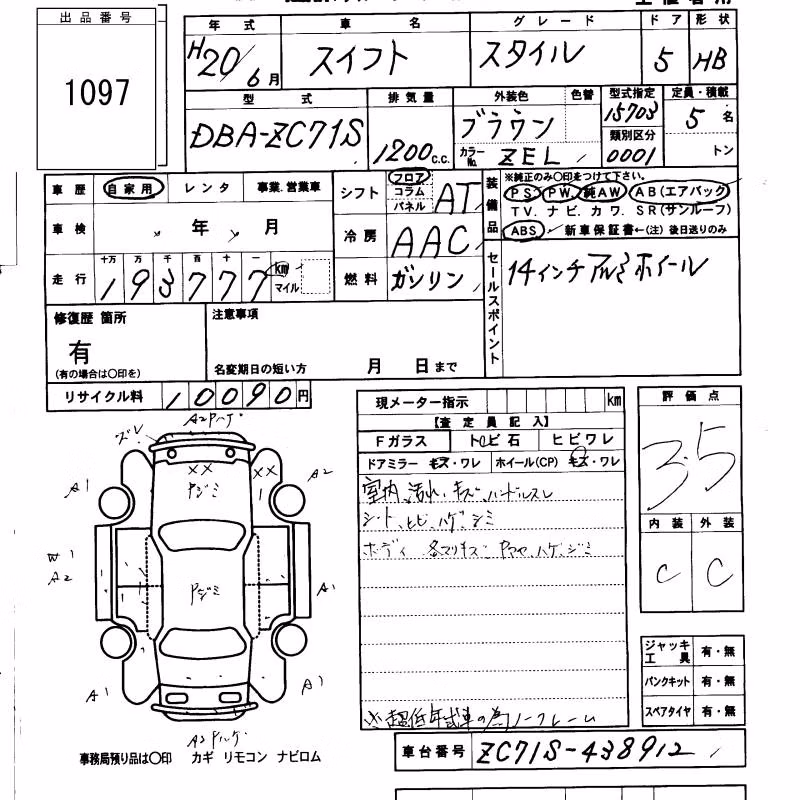 出品番号
1097
年式 車名 グレード ドア 形状
H20/6月 スイフト スタイル 5 HB
型式 排気量 外装色 色替 型式指定 定員・積載
DBA-ZC71S 1200c.c. ブラウン 15703 5名
カラーNo. ZEL 類別区分 0001 トン
車歴 自家用 レンタ 事業.営業車
シフト フロア コラム パネル AT
装備品 ※純正のみ〇印をつけて下さい。
PS. PW. 純AW. AB(エアバック)
TV. ナビ. カワ. SR(サンルーフ)
ABS 新車保証書←(注) 後日送りのみ
車検 年 月
冷房 AAC
走行 十万 万 千 百 十 一
193777 km マイル
燃料 ガソリン
セールスポイント
14インチアルミホイール
修復歴 箇所
有
(有の場合は〇印を)
注意事項
名変期日の短い方 月 日まで
リサイクル料 10090円
現メーター指示 km
【査定員記入】
Fガラス トビ石 ヒビワレ
ドアミラー キズ・ワレ ホイール(CP) キズ・ワレ
室内 汚れ、キズ、ハンドルスレ
シート、ヒビ、ハゲ、シミ
ボディ 各マリキズ ヤケ、ハゲ、ジミ
※超低年式車の為ノークレーム
評価点
3.5
内装 外装
C C
A2 Pハゲ
ズレ
XX XX
Pジミ
A1 A2
W1
A2
Pジミ
A1
A1 A1
A2 Pハゲ
ジャッキ工具 有・無
パンクキット 有・無
スペアタイヤ 有・無
事務局預り品は〇印 カギ リモコン ナビロム
車台番号 ZC71S-438912